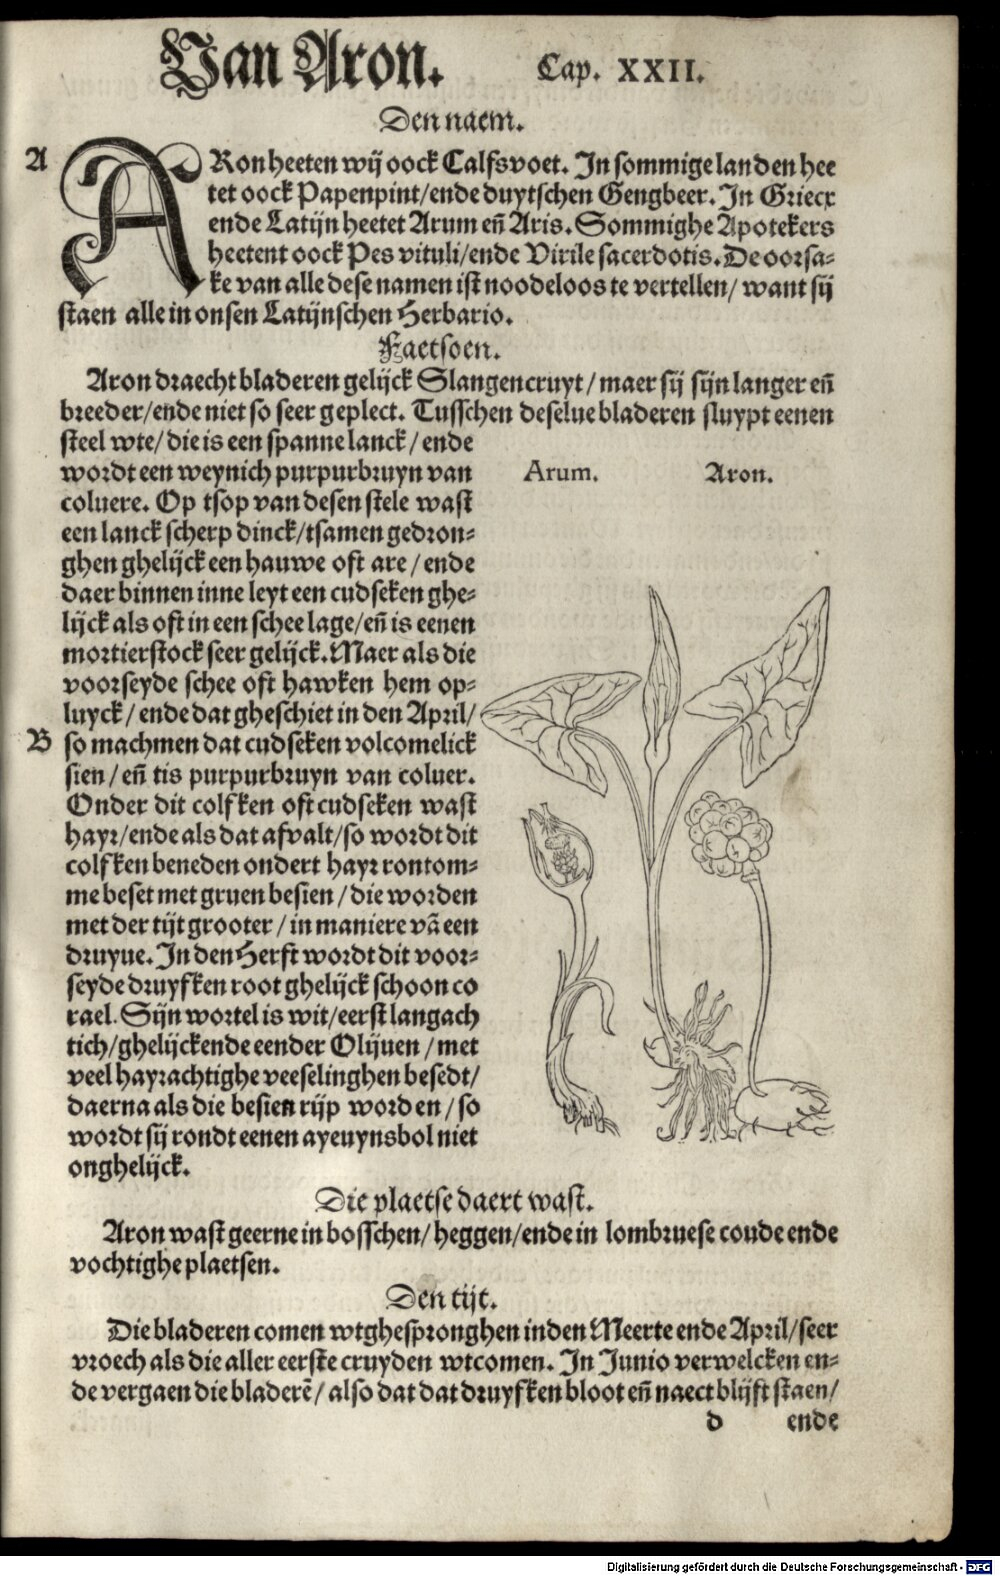 Van Aron. Cap. XXII.
Den naem.
A
ARon heeten wij oock Calfsvoet. In sommige landen hee
tet oock Papenpint/ende duytschen Gengbeer. In Griecx
ende Latijn heetet Arum en̄ Aris. Sommighe Apotekers
heetent oock Pes vituli/ende Virile sacerdotis. De oorsa-
ke van alle dese namen ist noodeloos te vertellen/ want sij
staen alle in onsen Latijnschen Herbario.
Faetsoen.
Aron draecht bladeren gelijck Slangencruyt/ maer sij sijn langer en̄
breeder/ende niet so seer geplect. Tusschen deselue bladeren sluypt eenen
steel wte/ die is een spanne lanck/ ende
wordt een weynich purpurbruyn van
coluere. Op tsop van desen stele wast
een lanck scherp dinck/tsamen gedron-
ghen ghelijck een hauwe oft are/ ende
daer binnen inne leyt een cudseken ghe-
lijck als oft in een schee lage/en̄ is eenen
mortierstock seer gelijck. Maer als die
voorseyde schee oft hawken hem op-
luyck/ ende dat gheschiet in den April/
B
so machmen dat cudseken volcomelick
sien/ en̄ tis purpurbruyn van coluer.
Onder dit colfken oft cudseken wast
hayr/ende als dat afvalt/so wordt dit
colfken beneden ondert hayr rontom-
me beset met gruen besien/ die worden
met der tijt grooter/ in maniere vā een
druyue. In den Herfst wordt dit voor-
seyde druyfken root ghelijck schoon co
rael. Sijn wortel is wit/eerst langach
tich/ghelijckende eender Olijuen/ met
veel hayrachtighe veeselinghen besedt/
daerna als die besien rijp worden/ so
wordt sij rondt eenen ayeuynsbol niet
onghelijck.
Arum. Aron.
Die plaetse daert wast.
Aron wast geerne in bosschen/ heggen/ende in lombruese coude ende
vochtighe plaetsen.
Den tijt.
Die bladeren comen wtghespronghen inden Meerte ende April/seer
vroech als die aller eerste cruyden wtcomen. In Junio verwelcken en-
de vergaen die bladerē/ also dat dat druyfken bloot en̄ naect blijft staen/
d ende
Digitalisierung gefördert durch die Deutsche Forschungsgemeinschaft - DFG